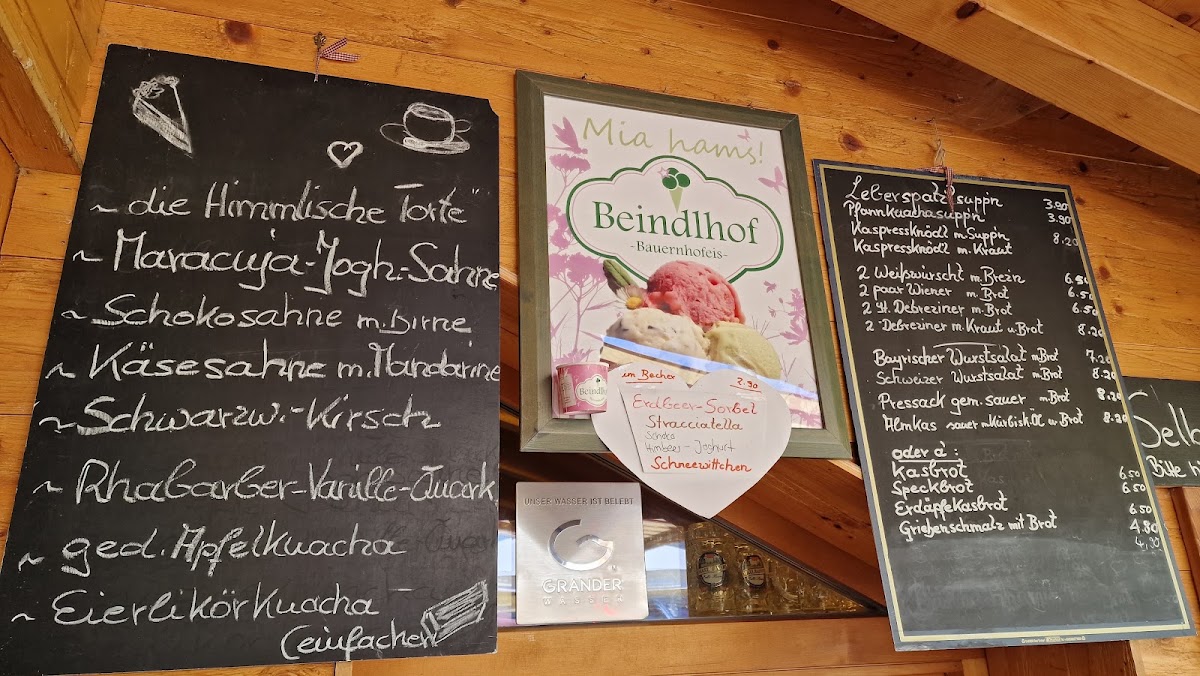 ~ die Himmlische Torte"
~ Maracuja-Jogh.-Sahne
~ Schokosahne m. Birne
~ Käsesahne m. Mandarine
~ Schwarzw.-Kirsch
~ Rhabarber-Vanille-Quark
~ ged. Apfelkuacha
~ Eierlikörkuacha
(einfacher)
Mia hams!
Beindlhof
-Bauernhofeis-
Beindlhof
im Becher 2.90
Erdbeer-Sorbet
Stracciatella
Schoko
Himbeer-Joghurt
Schneewittchen
UNSER WASSER IST BELEBT
GRANDER
WASSER
Leberspatzlsuppn 3.90
Pfannkuachasuppn 3.90
Kaspressknödl m. Suppn 8.20
Kaspressknödl m. Kraut
2 Weißwürscht m. Brezn 6.50
2 paar Wiener m. Brot 6.50
2 St. Debreziner m. Brot 6.50
2 Debreziner m. Kraut u. Brot 8.20
Bayrischer Wurstsalat m. Brot 7.20
Schweizer Wurstsalat m. Brot 8.20
Pressack gem. sauer m. Brot 8.20
Almkas sauer m. Kürbisk.Öl u. Brot 8.20
oder a':
Kasbrot 6.50
Speckbrot 6.50
Erdäpfekasbrot 6.50
Griebenschmalz mit Brot 4.80
4,30
Selb
Bitte